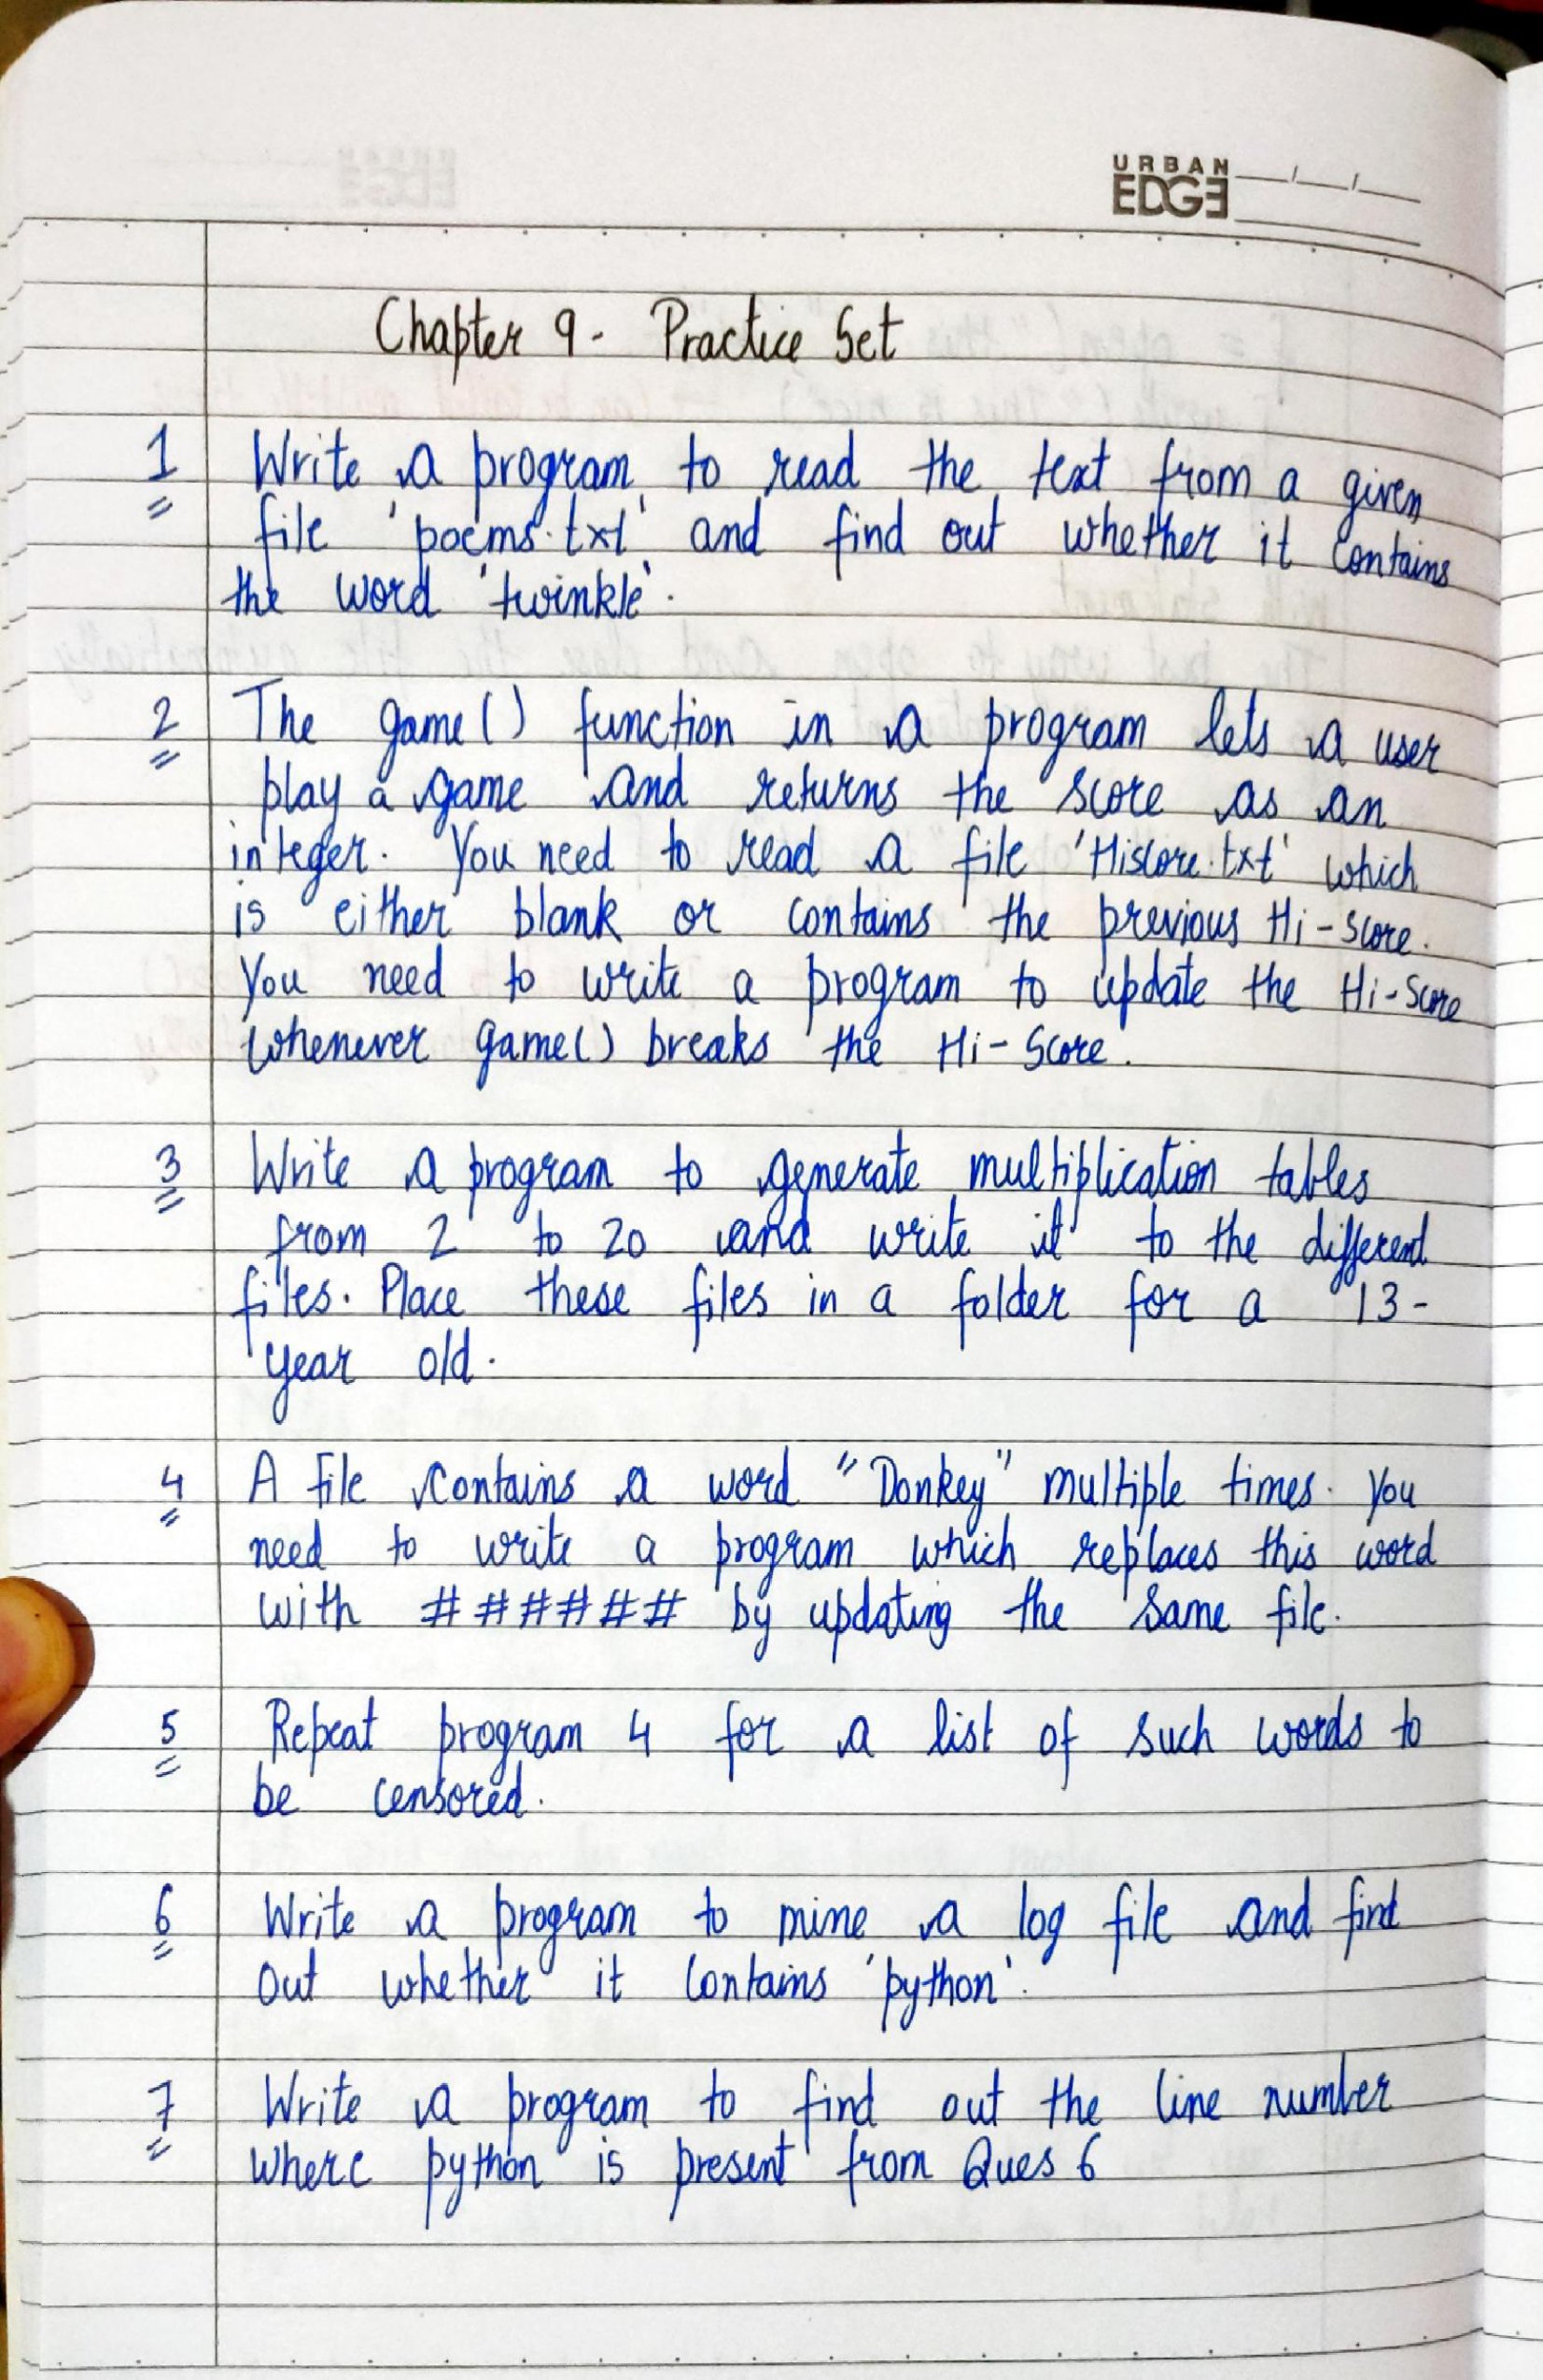 URBAN
EDGE
Chapter 9 - Practice Set
1 Write a program to read the text from a given
file 'poems.txt' and find out whether it contains
the word 'twinkle'.
2 The game() function in a program lets a user
play a game and returns the score as an
integer. You need to read a file 'Hiscore.txt' which
is either blank or contains the previous Hi-Score.
You need to write a program to update the Hi-Score
whenever game() breaks the Hi-Score.
3 Write a program to generate multiplication tables
from 2 to 20 and write it to the different
files. Place these files in a folder for a 13-
year old.
4 A file contains a word "Donkey" multiple times. You
need to write a program which replaces this word
with ###### by updating the same file.
5 Repeat program 4 for a list of such words to
be censored.
6 Write a program to mine a log file and find
out whether it contains 'python'.
7 Write a program to find out the line number
where python is present from Ques 6